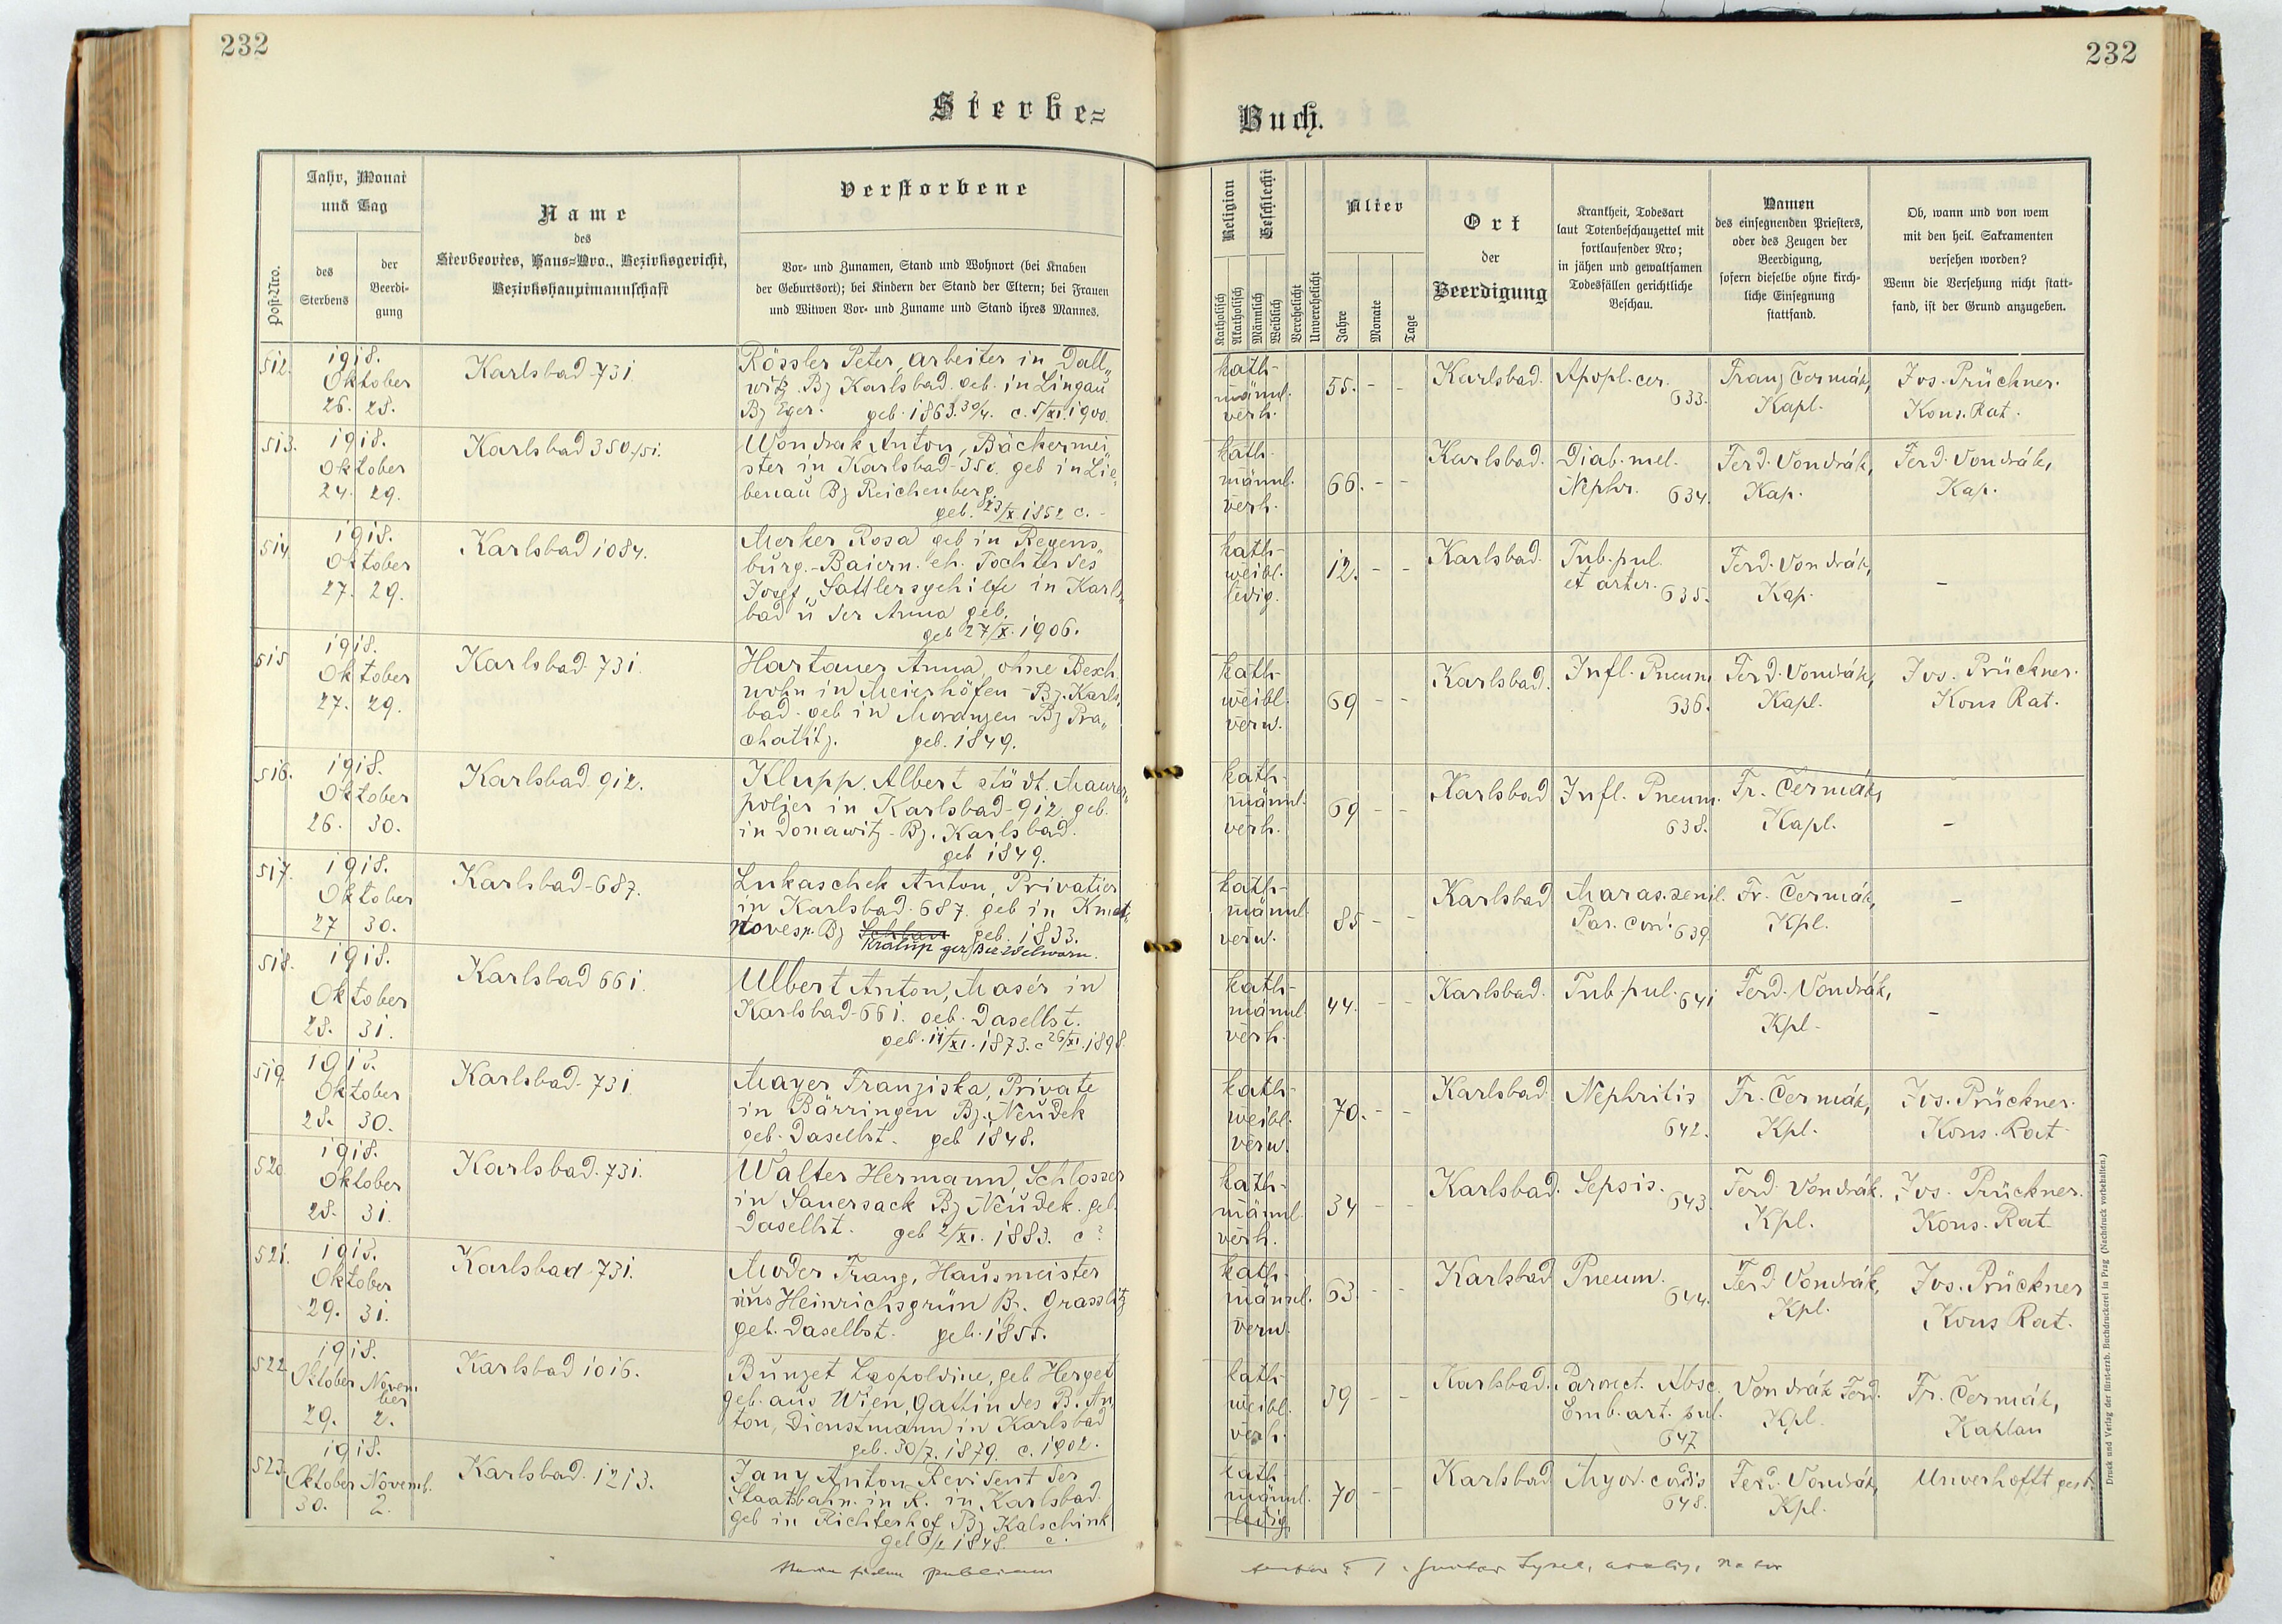 232
232
Sterbe=
Buch.
Post-Nro.
Jahr, Monat
und Tag
des
Sterbens
der
Beerdi-
gung
Name
des
Sterbeortes, Haus=Nro., Bezirksgericht,
Bezirkshauptmannschaft
Verstorbene
Vor- und Zunamen, Stand und Wohnort (bei Knaben
der Geburtsort); bei Kindern der Stand der Eltern; bei Frauen
und Witwen Vor- und Zuname und Stand ihres Mannes.
Religion
Katholisch
Akatholisch
Geschlecht
Männlich
Weiblich
Verehelicht
Unverehelicht
Alter
Jahre
Monate
Tage
Ort
der
Beerdigung
Krankheit, Todesart
laut Totenbeschauzettel mit
fortlaufender Nro;
in jähen und gewaltsamen
Todesfällen gerichtliche
Beschau.
Namen
des einsegnenden Priesters,
oder des Zeugen der
Beerdigung,
sofern dieselbe ohne kirch-
liche Einsegnung
stattfand.
Ob, wann und von wem
mit den heil. Sakramenten
versehen worden?
Wenn die Versehung nicht statt-
fand, ist der Grund anzugeben.
512.
1918.
Oktober
26. 28.
Karlsbad-731.
Rössler Peter, Arbeiter in Dall„
witz Bz Karlsbad geb. in Lingau
Bz Eger. geb. 1863.30/4. c. 5/XI.1900.
kath-
männl.
verh.
55. - -
Karlsbad.
Apopl. cer.
633.
Franz Čermák,
Kapl.
Jos. Prückner.
Kons. Rat.
513.
1918.
Oktober
24. 29.
Karlsbad 350./51.
Wondrak Anton, Bäckermei„
ster in Karlsbad-350. geb in Lie„
benau Bz Reichenberg.
geb. 23/X.1852 c. -
kath-
männl.
verh.
66. - -
Karlsbad.
Diab. mel.
Nephr. 634.
Ferd. Vondrák,
Kap.
Ferd. Vondrák,
Kap.
514
1918.
Oktober
27. 29.
Karlsbad 1084.
Merker Rosa geb in Regens„
burg.-Baiern. eh. Tochter des
Josef, Sattlersgehilfe in Karls„
bad u der Anna geb.
geb 27/X. 1906.
kath-
weibl.
ledig.
12. - -
Karlsbad.
Tub. pul.
et arter. 635.
Ferd. Vondrák,
Kap.
-
515
1918.
Oktober
27. 29.
Karlsbad. 731.
Hartauer Anna, ohne Besch.
wohn in Meierhöfen - Bz. Karls„
bad. geb in Moranzen Bz Pra„
chatitz. geb. 1849.
kath-
weibl.
verw.
69 - -
Karlsbad.
Infl. Pneum
636.
Ferd. Vondrák,
Kapl.
Jos. Prückner.
Kons Rat.
516.
1918.
Oktober
26. 30.
Karlsbad. 912.
Klupp. Albert städt. Maurer„
polier in Karlsbad-912. geb.
in Donawitz - Bz. Karlsbad.
geb 1849.
kath-
männl.
verh.
69 - -
Karlsbad
Infl. Pneum.
638.
Fr. Čermák,
Kapl.
-
517.
1918.
Oktober
27 30.
Karlsbad-687.
Lukaschek Anton, Privatier
in Karlsbad. 687. geb in
Bz Schlan geb. 1833.
Kralup
kath-
männl.
verw.
85 - -
Karlsbad
Maras. senil.
Par. 639
Fr. Čermák,
Kpl.
-
518.
1918.
Oktober
28. 31.
Karlsbad 661.
Ulbert Anton, Masér in
Karlsbad-661. geb. Daselbst.
geb. 11/XI. 1873. c 26/XI. 1898.
kath-
männl.
verh.
44. - -
Karlsbad.
Tub pul. 641
Ferd. Vondrák,
Kpl.
-
519.
1918.
Oktober
28. 30.
Karlsbad-731.
Mayer Franziska, Private
in Bärringen Bz. Neudek
geb. Daselbst. geb 1848.
kath-
weibl.
verw.
70. - -
Karlsbad
Nephritis
642.
Fr. Čermák,
Kpl.
Jos. Prückner.
Kons. Rat
520
1918.
Oktober
28. 31.
Karlsbad. 731.
Walter Hermann, Schlosser
in Sauersack Bz Neudek. geb.
Daselbst. geb 2/XI. 1883. c ?
kath-
männl.
verh.
34 - -
Karlsbad.
Sepsis.
643.
Ferd. Vondrák.
Kpl.
Jos. Prückner.
Kons. Rat
521.
1918.
Oktober
29. 31.
Karlsbad-731.
Moder Franz, Hausmeister
aus Heinrichsgrün Bz. Grasslitz
geb. Daselbst. geb. 1855.
kath-
männl.
verw.
63. - -
Karlsbad
Pneum.
644.
Ferd Vondrák,
Kpl.
Jos. Prückner
Kons Rat.
522
1918.
Oktober Novem
ber
29. 2.
Karlsbad 1016.
Bunzet Leopoldine, geb Herget
geb. aus Wien, Gattin des B. An„
ton, Dienstmann in Karlsbad
geb. 30/7. 1879. c. 1902.
kath-
weibl.
verh.
39 - -
Karlsbad.
Absc.
Emb. art. pul.
647
Vondrák Ferd.
Kpl.
Fr. Čermák,
Kaplan
523.
1918.
Oktober Novemb.
30. 2.
Karlsbad. 1213.
Jany Anton, Revident der
Staatsbahn. in R. in Karlsbad.
geb in Richterhof Bz Kalsching
geb 1848. c.
kath
männl.
ledig
70 - -
Karlsbad
Myod. cordis
648.
Ferd. Vondrák,
Kpl.
Unverhofft gest.
publicum
Druck und Verlag der fürst-erzb. Buchdruckerei in Prag (Nachdruck vorbehalten.)